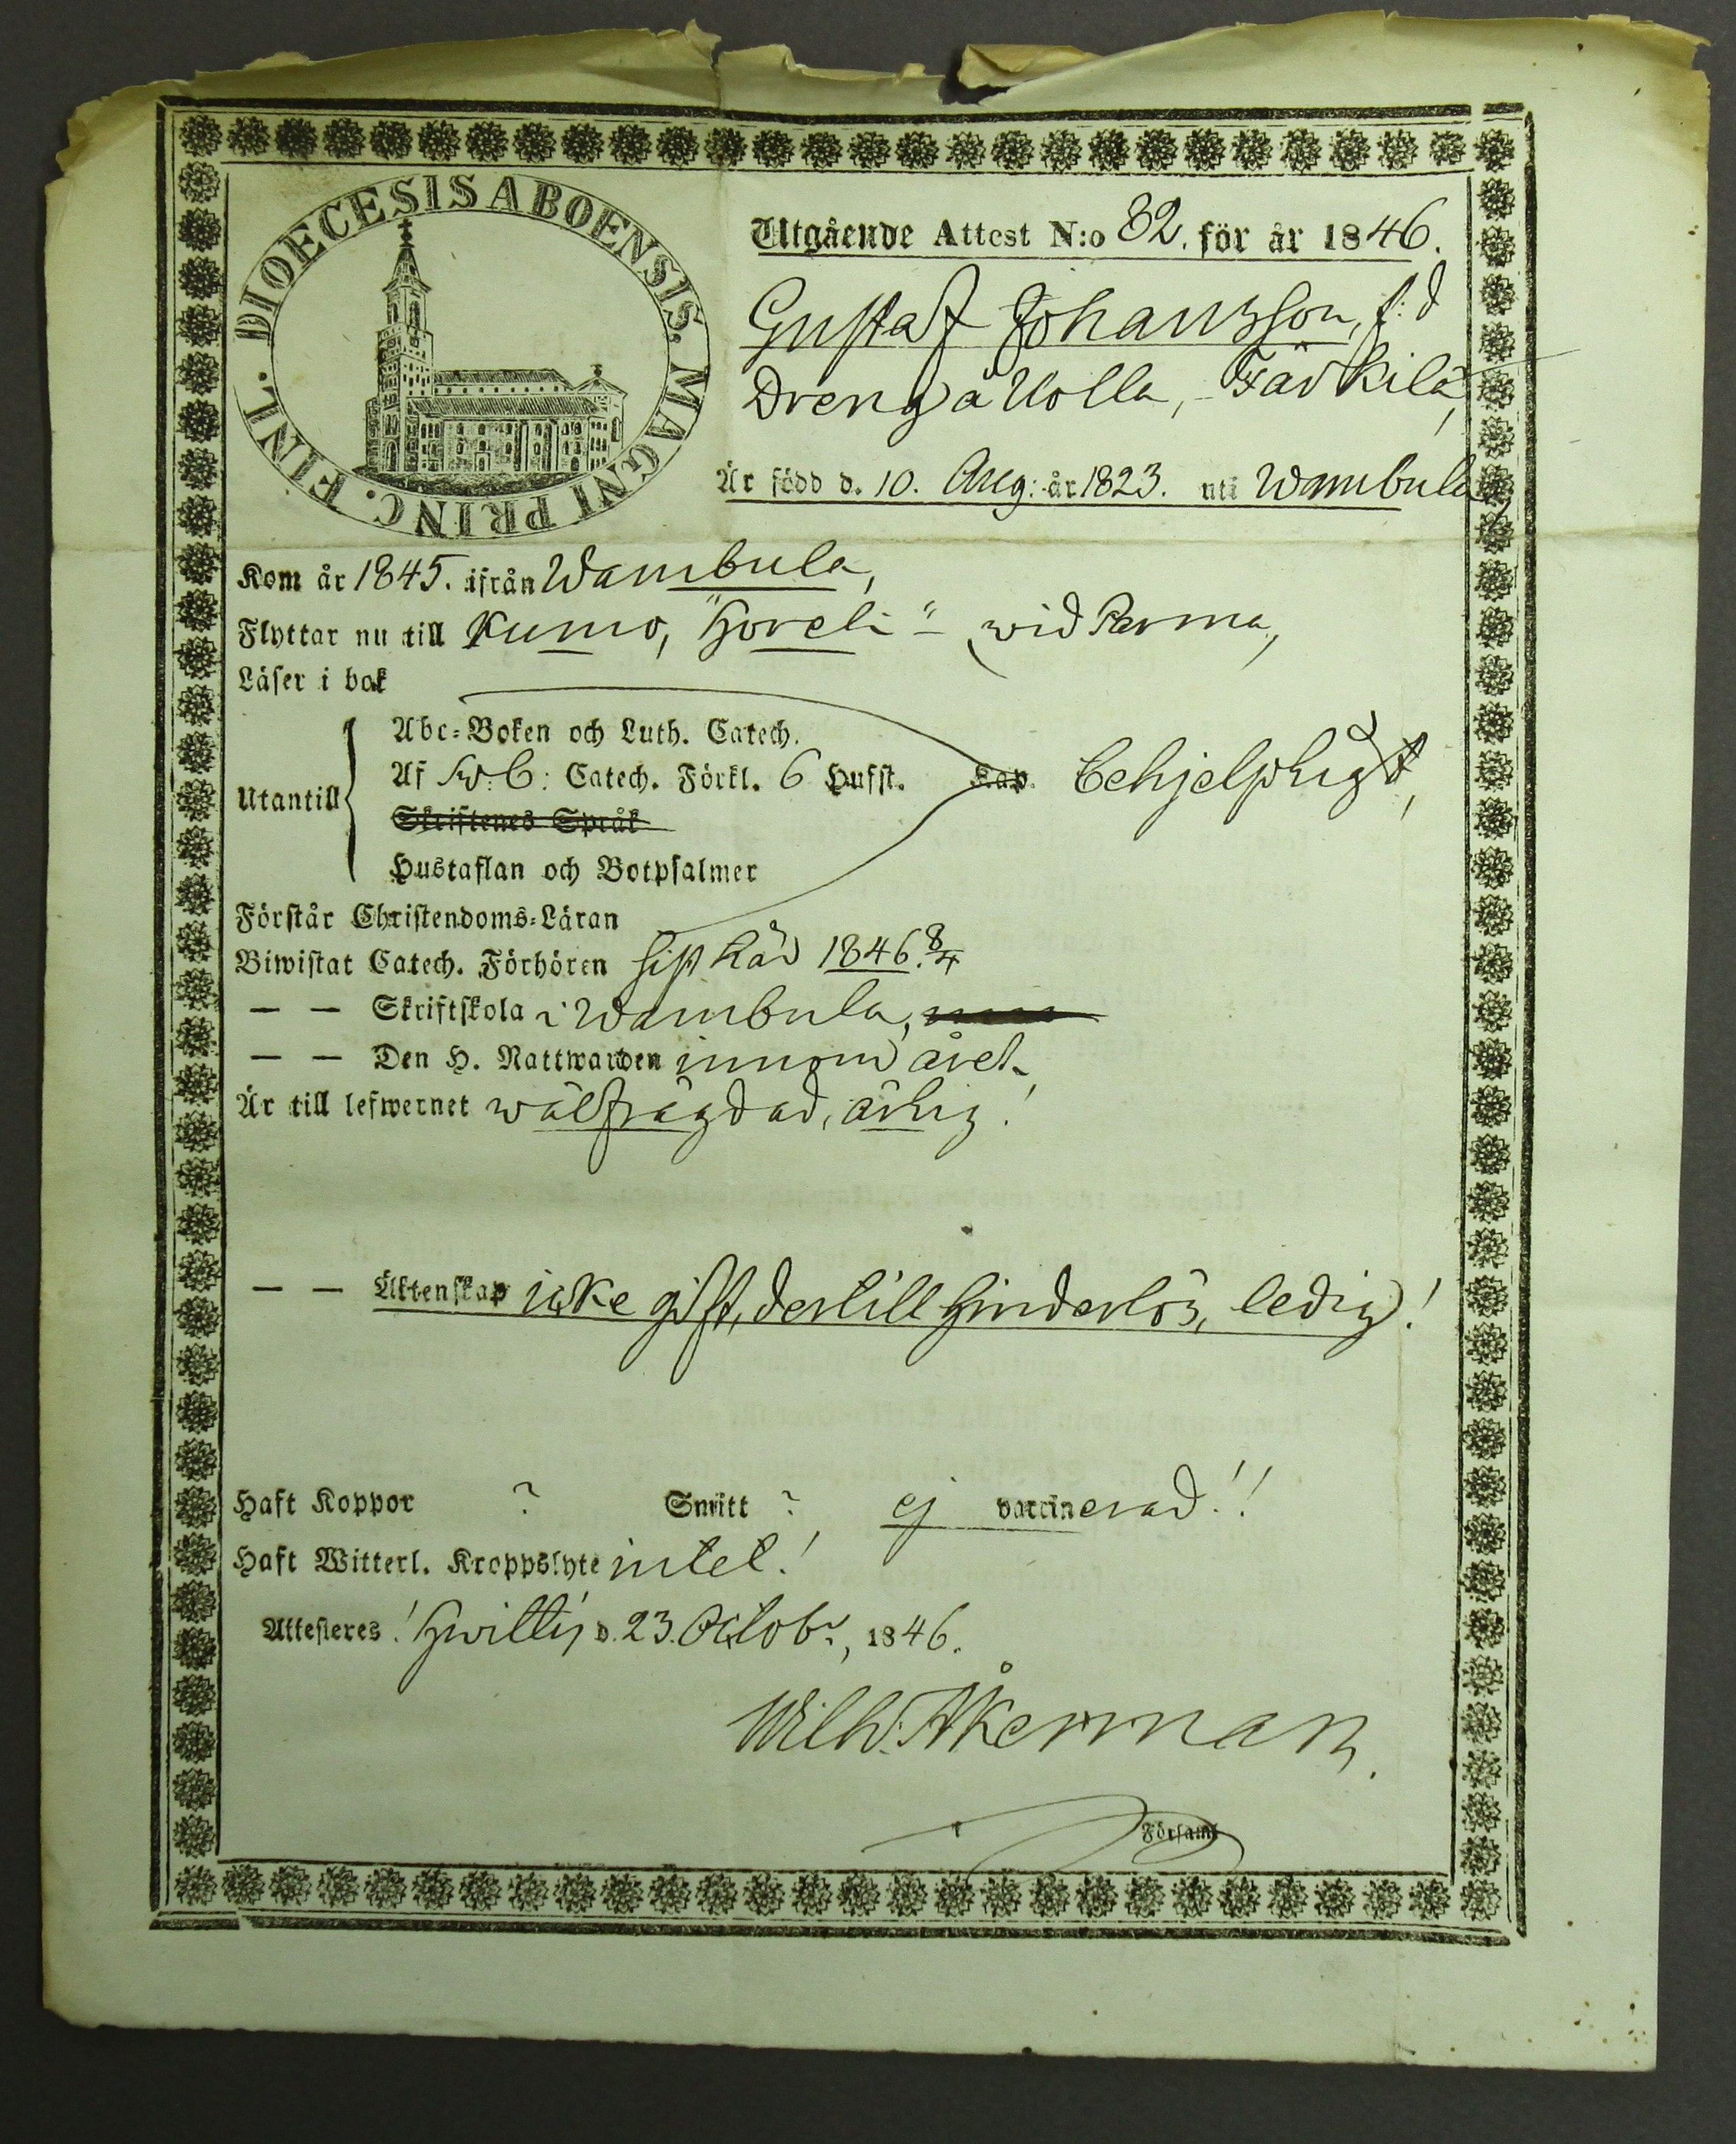 DIOECESIS ABOENSIS. MAGNI PRINC. FINL.
Utgående Attest N:o 82. för år 1846.
Gustaf Johansson, f:d
Dreng å Uolla, Färkilä,
Är född d. 10. Aug: år 1823. uti Wambula,
Kom år 1845. ifrån Wambula,
Flyttar nu till Kumo, "Horeli" - wid Parma,
Läser i bok
Abc-Boken och Luth. Catech.
Utantill Af Sv. C: Catech. Förkl. 6 Hufst. Kap. behjelpligt,
Skriftenes Språk
Hustaflan och Botpsalmer
Förstår Christendoms-Läran
Biwistat Catech. Förhören sist här 1846. 8/4
— — Skriftskola i Wambula,
— — Den H. Nattwarden innom året,
Är till lefwernet wälfrägdad, ärlig!
— — Äktenskap icke gift, dertill hinderlös, ledig!
Haft Koppor ? Smitt ? ej vaccinerad!!
Haft Witterl. Kroppslyte intet!
Attesteres! Hwittis d. 23. Octobr, 1846.
Wilh. Åkerman.
Församl